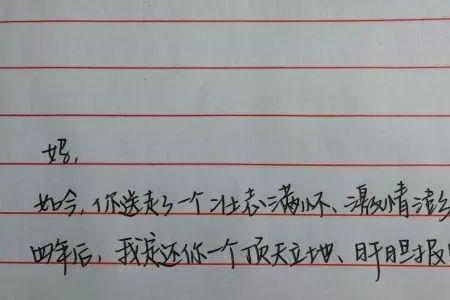 妈,
如今,你送走了一个壮志满怀、激情澎
四年后,我定还你一个顶天立地、肝胆报